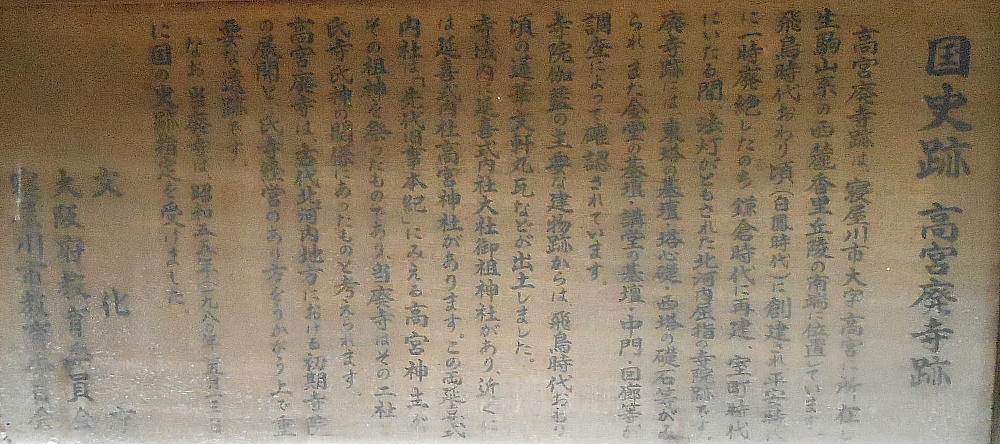 国史跡 高宮廃寺跡
高宮廃寺跡は、寝屋川市大字高宮に所在し
生駒山系の西麓香里丘陵の南端に位置しています。
飛鳥時代おわり頃(白鳳時代)に創建され平安時代
に一時廃絶したのち鎌倉時代に再建、室町時代
にいたる間、法灯がともされた北河内屈指の寺院跡です。
廃寺跡には、東塔の基壇・塔心礎・西塔の礎石等がみ
られ、また金堂の基壇・講堂の基壇・中門・回廊等が
調査によって確認されています。
寺院伽藍の主要な建物跡からは、飛鳥時代おわり
頃の蓮華文軒丸瓦などが出土しました。
寺域内に延喜式内社大社御祖神社があり、近くに
は延喜式内社高宮神社があります。この両延喜式
内社は「先代旧事本紀」にみえる高宮神主が
その祖神を祭ったものであり、当廃寺はその二社と
氏寺氏神の関係にあったものと考えられます。
高宮廃寺は、古代北河内地方における初期寺院
の展開と、氏寺経営のあり方をうかがう上で重
要な遺跡です。
なお、当廃寺は、昭和五五年(一九八〇年)五月 日
に国の史跡指定を受けました。
文化庁
大阪府教育委員会
寝屋川市教育委員会